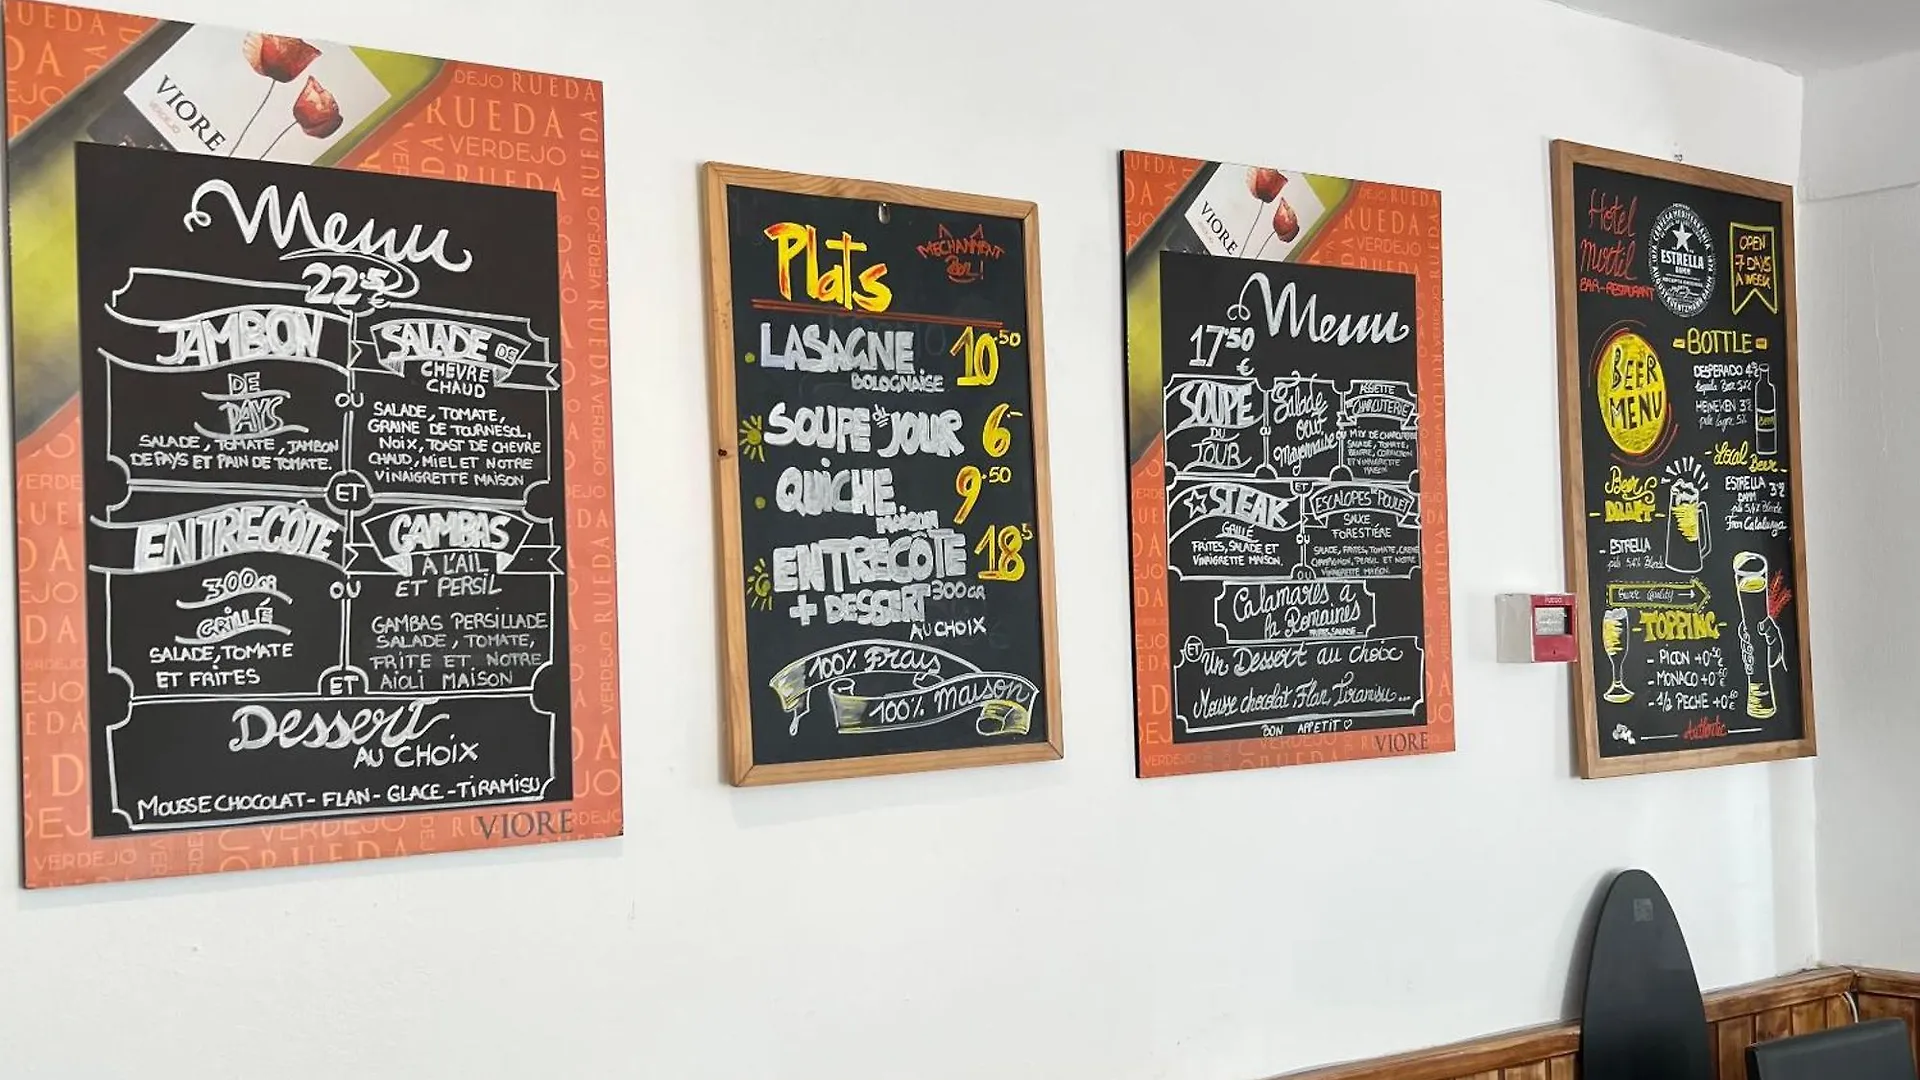 VIORE
VERDEJO
RUEDA
VERDEJO
Menu
22.5 €
JAMBON
DE
PAYS
SALADE, TOMATE, JAMBON
DE PAYS ET PAIN DE TOMATE.
OU
SALADE DE
CHEVRE
CHAUD
SALADE, TOMATE,
GRAINE DE TOURNESOL,
NOIX, TOAST DE CHEVRE
CHAUD, MIEL ET NOTRE
VINAIGRETTE MAISON
ET
ENTRECÔTE
300GR
GRILLÉ
SALADE, TOMATE
ET FRITES
OU
GAMBAS
À L'AIL
ET PERSIL
GAMBAS PERSILLADE
SALADE, TOMATE,
FRITE ET NOTRE
AIOLI MAISON
ET
Dessert
AU CHOIX
MOUSSE CHOCOLAT - FLAN - GLACE - TIRAMISU
VIORE
Plats
MECHANMENT
BON!
LASAGNE 10.50
BOLOGNAISE
SOUPE du JOUR 6-
QUICHE 9.50
MAISON
ENTRECÔTE 18.5
+ DESSERT 300GR
AU CHOIX
100% Frais
100% Maison
VIORE
RUEDA
VERDEJO
Menu
17.50 €
SOUPE
DU
JOUR
Salade
oeuf
Mayonnaise
ASSIETTE
CHARCUTERIE
MIX DE CHARCUTERIE
SALADE, TOMATE,
BEURRE, CORNICHON
ET VINAIGRETTE
MAISON
ET
STEAK
GRILLÉ
FRITES, SALADE ET
VINAIGRETTE MAISON.
OU
ESCALOPES DE POULET
SAUCE
FORESTIÈRE
SALADE, FRITES, TOMATE, CREME
CHAMPIGNON, PERSIL ET NOTRE
VINAIGRETTE MAISON.
OU
Calamares à
la Romaines
ET
Un Dessert au choix
Mousse chocolat, Flan, Tiramisu...
BON APPETIT
VIORE
Hotel
Murtil
BAR-RESTAURANT
ESTRELLA
DAMM
OPEN
7 DAYS
A WEEK
BEER
MENU
- BOTTLE -
DESPERADO
HEINEKEN
- Local Beer -
ESTRELLA
DAMM
From Catalunya
Beer
- DRAFT -
- ESTRELLA
Super Quality
- TOPPING -
- PICON +0.50€
- MONACO +0
- 1/2 PECHE +0
Authentic
FUEGO